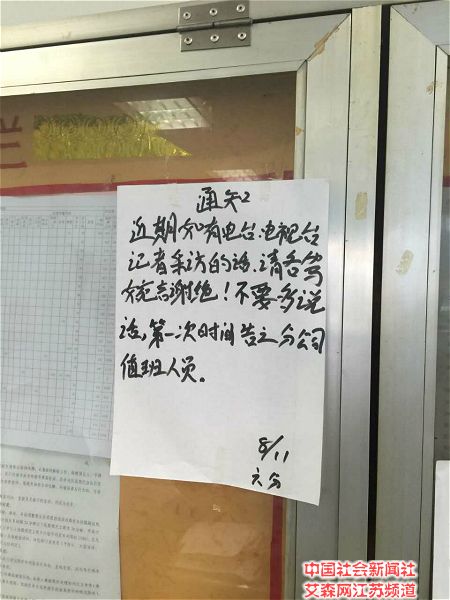 栏
通知
近期如有电台、电视台
记者采访的话、请各
婉言谢绝！不要多说
话，第一次时间告之分公司
值班人员。
8/11
六分
中国社会新闻社
艾森网江苏频道